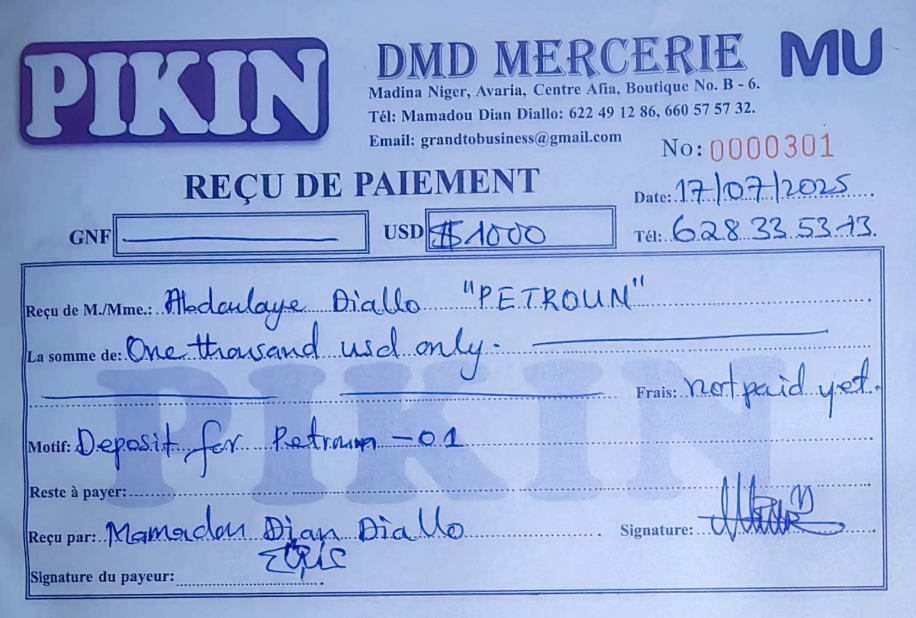 PIKIN
DMD MERCERIE
MU
Madina Niger, Avaria, Centre Afia, Boutique No. B - 6.
Tél: Mamadou Dian Diallo: 622 49 12 86, 660 57 57 32.
Email: grandtobusiness@gmail.com
No: 0000301
REÇU DE PAIEMENT
Date: 17/07/2025
GNF
USD $1000
Tél: 628 33 53 13.
Reçu de M./Mme.: Abdoulaye Diallo "PETROUN"
La somme de: One thousand usd only.
Frais: not paid yet.
Motif: Deposit for Petroun - 01
Reste à payer:
Reçu par: Mamadou Dian Diallo
Signature:
Signature du payeur:
PIKIN